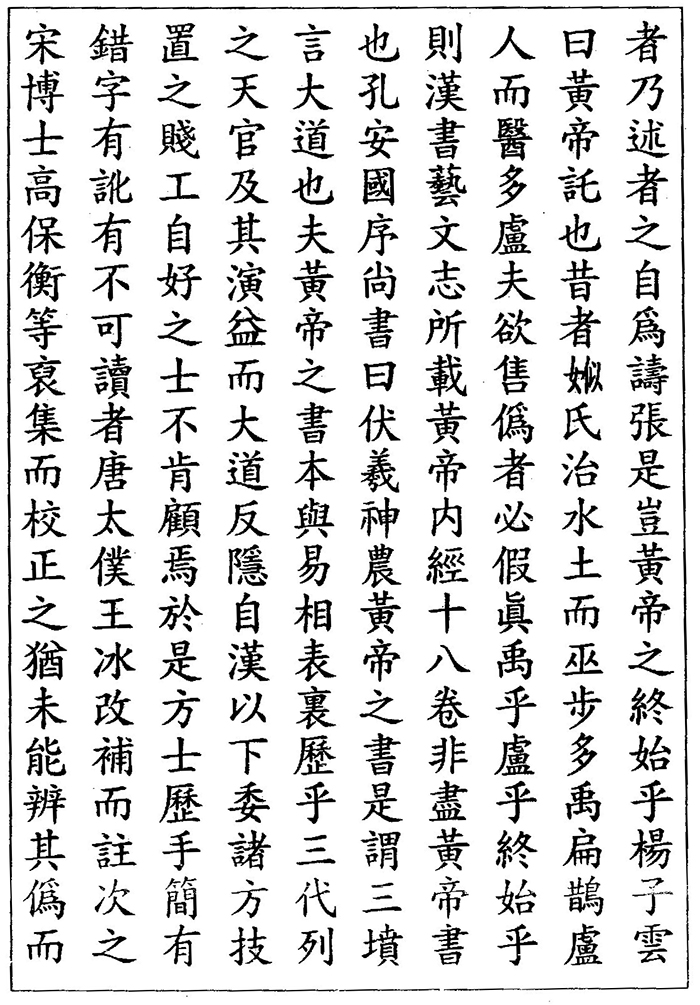 者乃述者之自爲譸張是豈黃帝之終始乎楊子雲
曰黃帝託也昔者姒氏治水土而巫步多禹扁鵲盧
人而醫多盧夫欲售僞者必假眞禹乎盧乎終始乎
則漢書藝文志所載黃帝内經十八卷非盡黃帝書
也孔安國序尚書曰伏羲神農黃帝之書是謂三墳
言大道也夫黃帝之書本與易相表裏歷乎三代列
之天官及其演益而大道反隱自漢以下委諸方技
置之賤工自好之士不肯顧焉於是方士歷手簡有
錯字有訛有不可讀者唐太僕王冰改補而註次之
宋博士高保衡等裒集而校正之猶未能辨其僞而